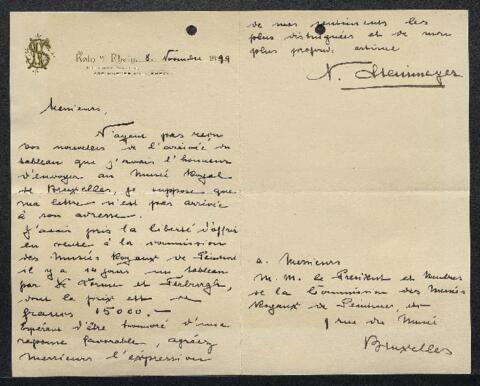 Köln a/ Rhein, 8. Novembre 1899
Messieurs,
N'ayant pas reçu
vos nouvelles de l'arrivée du
tableau que j'avais l'honneur
d'envoyer au Musée Royal
de Bruxelles, je suppose que
ma lettre n'est pas arrivée
à son adresse.
J'avais pris la liberté d'offrir
en vente à la commission
des Musées Royaux de Peinture
il y a 14 jours un tableau
par de Lorme et Terburgh,
dont le prix est de
francs 15000.-
Espérant d'être honoré d'une
reponse favorable, agréez
Messieurs l'expression
de mes sentiments les
plus distinguées et de mon
plus profond estime
N. Steinmeyer
a. Messieurs
M.M. le President et Membres
de la Commission des Musées
Royaux de Peinture, et
9 rue du Musée
Bruxelles